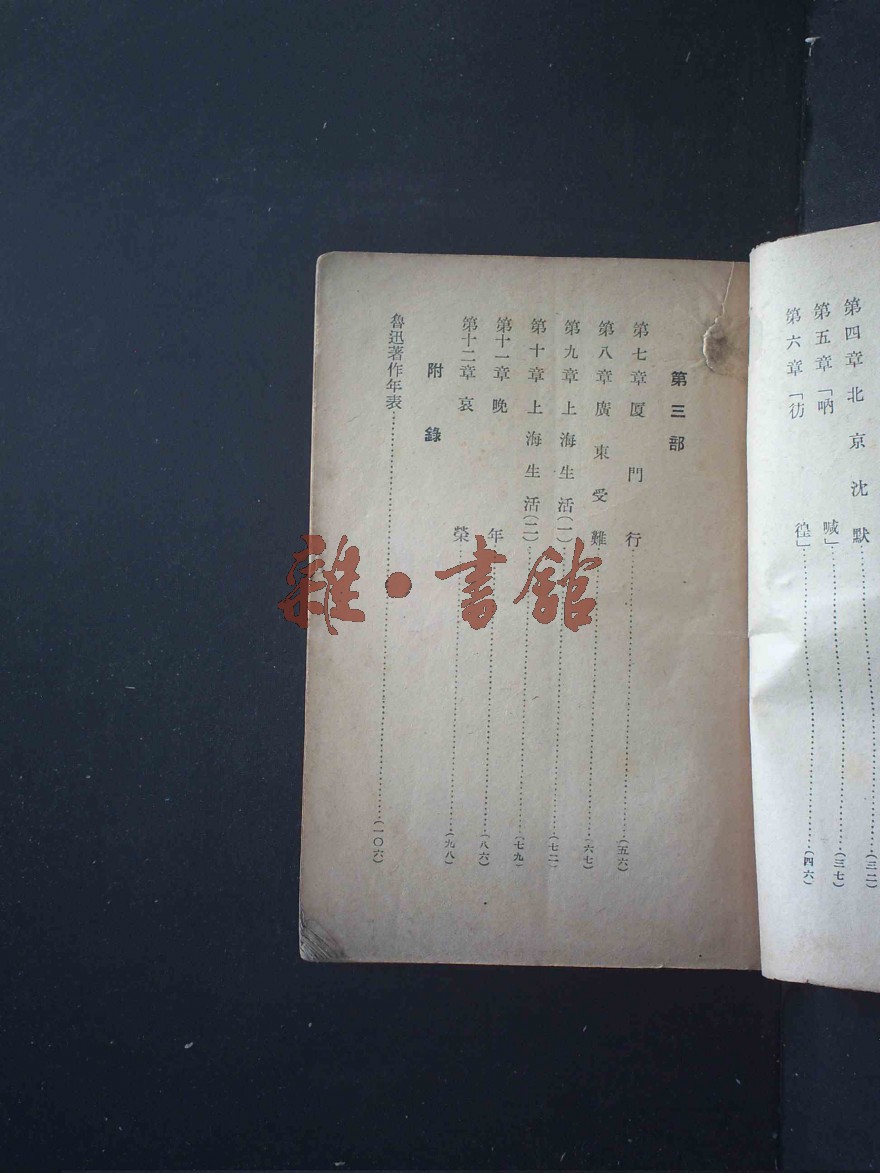 第四章 北京沈默……(三二)
第五章 「吶喊」……(三七)
第六章 「彷徨」……(四六)
第三部
第七章 厦門行……(五六)
第八章 廣東受難……(六七)
第九章 上海生活(一)……(七二)
第十章 上海生活(二)……(七九)
第十一章 晚年……(八六)
第十二章 哀榮……(九八)
附錄
魯迅著作年表……(一〇六)
雜·書館